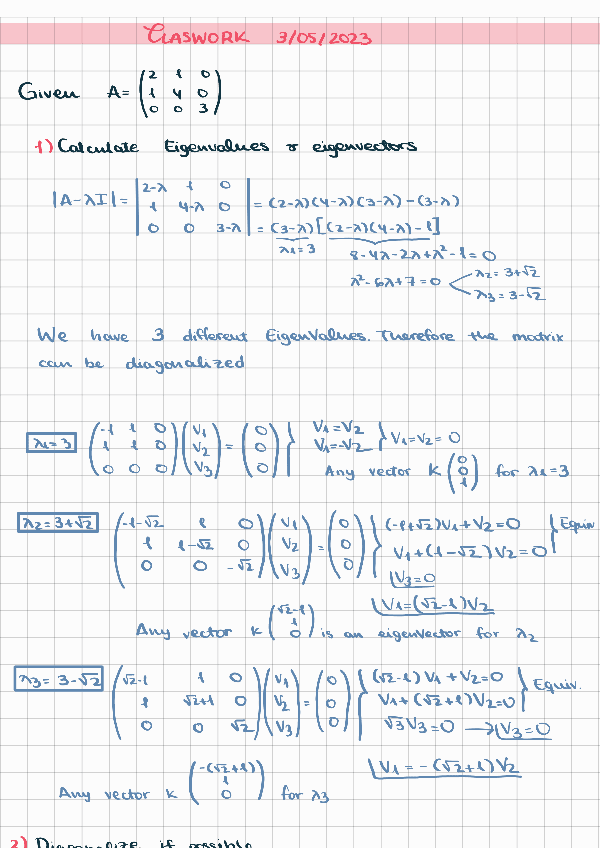 CLASWORK 3/05/2023
Given A= (2 1 0
1 4 0
0 0 3)
1) Calculate Eigenvalues & eigenvectors
|A-λI| = |2-λ 1 0
1 4-λ 0
0 0 3-λ| = (2-λ)(4-λ)(3-λ) - (3-λ)
= (3-λ)[(2-λ)(4-λ)-1]
λ1=3
8-4λ-2λ+λ²-1=0
λ²-6λ+7=0
λ2=3+√2
λ3=3-√2
We have 3 different EigenValues. Therefore the matrix
can be diagonalized
λ1=3 (-1 1 0
1 1 0
0 0 0) (V1
V2
V3) = (0
0
0) } V1=V2
V1=-V2 } V1=V2=0
Any vector k (0
0
1) for λ1=3
λ2=3+√2 (-1-√2 1 0
1 1-√2 0
0 0 -√2) (V1
V2
V3) = (0
0
0) } (-1+√2)V1+V2=0
V1+(1-√2)V2=0 } Equiv
V3=0
V1=(√2-1)V2
Any vector k (√2-1
1
0) is an eigenvector for λ2
λ3=3-√2 (√2-1 1 0
1 √2+1 0
0 0 √2) (V1
V2
V3) = (0
0
0) } (√2-1)V1+V2=0
V1+(√2+1)V2=0 } Equiv.
√3V3=0 → V3=0
V1=-(√2+1)V2
Any vector k (-(√2+1)
1
0) for λ3
2) Diagonalize if possible